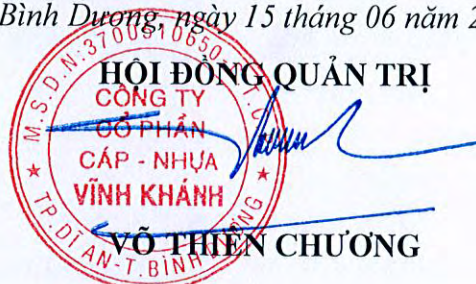 Bình Dương, ngày 15 tháng 06 năm 2
HỘI ĐỒNG QUẢN TRỊ
CÔNG TY
CỔ PHẦN
CÁP - NHỰA
VĨNH KHÁNH
TP.DĨ AN-T.BÌNH DƯƠNG
VÕ THIÊN CHƯƠNG